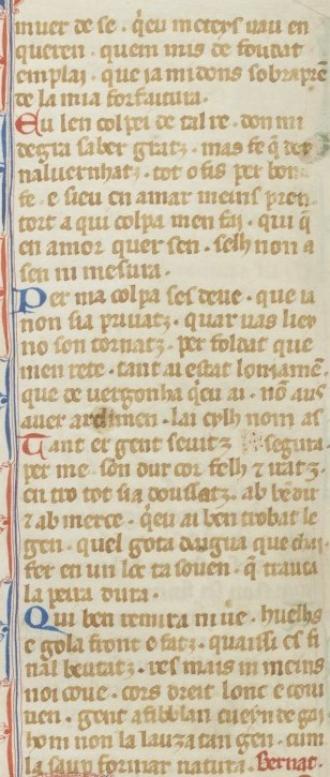 muer de se · q̄eu meteys uau en
queren · quem mis de foudat
emplai · que ia midons sobraprē
de la mia forfaitura ·
Eu len colpei de tal re · don mi
degra saber gratz · mas fe q̄ dei
naluernhatz · tot o fis per bon
fe · e sieu en amar meins pren
tort a qui colpa men fai · qui q̄
en amor quer sen · selh non a
sen ni mesura ·
Per ma colpa ses deue · que ia
non sia priuatz · quar uas lieys
no son tornatz · per foldat que
men rete · tant ai estat loniamē
que de uergonha q̄eu ai · nō aus
auer ardimen · lai cylh nom as
Tant er gent seruitz segura
per me · son dur cor felh ⁊ iratz ·
en tro tot sia doussatz · ab bē dir
⁊ ab merce · q̄eu ai ben trobat le
gen · quel gota daigua que chai
fer en un loc ta souen · q̄ trauca
la peira dura ·
Qui ben remira ni ue · huelhs
e gola front e fatz · quaissi es fi
nal beutatz · res mais ni meins
noi coue · cors dreit lonc e coui
nen · gent afiblan cueynde gai
hom non la lauza tan gen · cum
la saup formar natura · Bernat ·